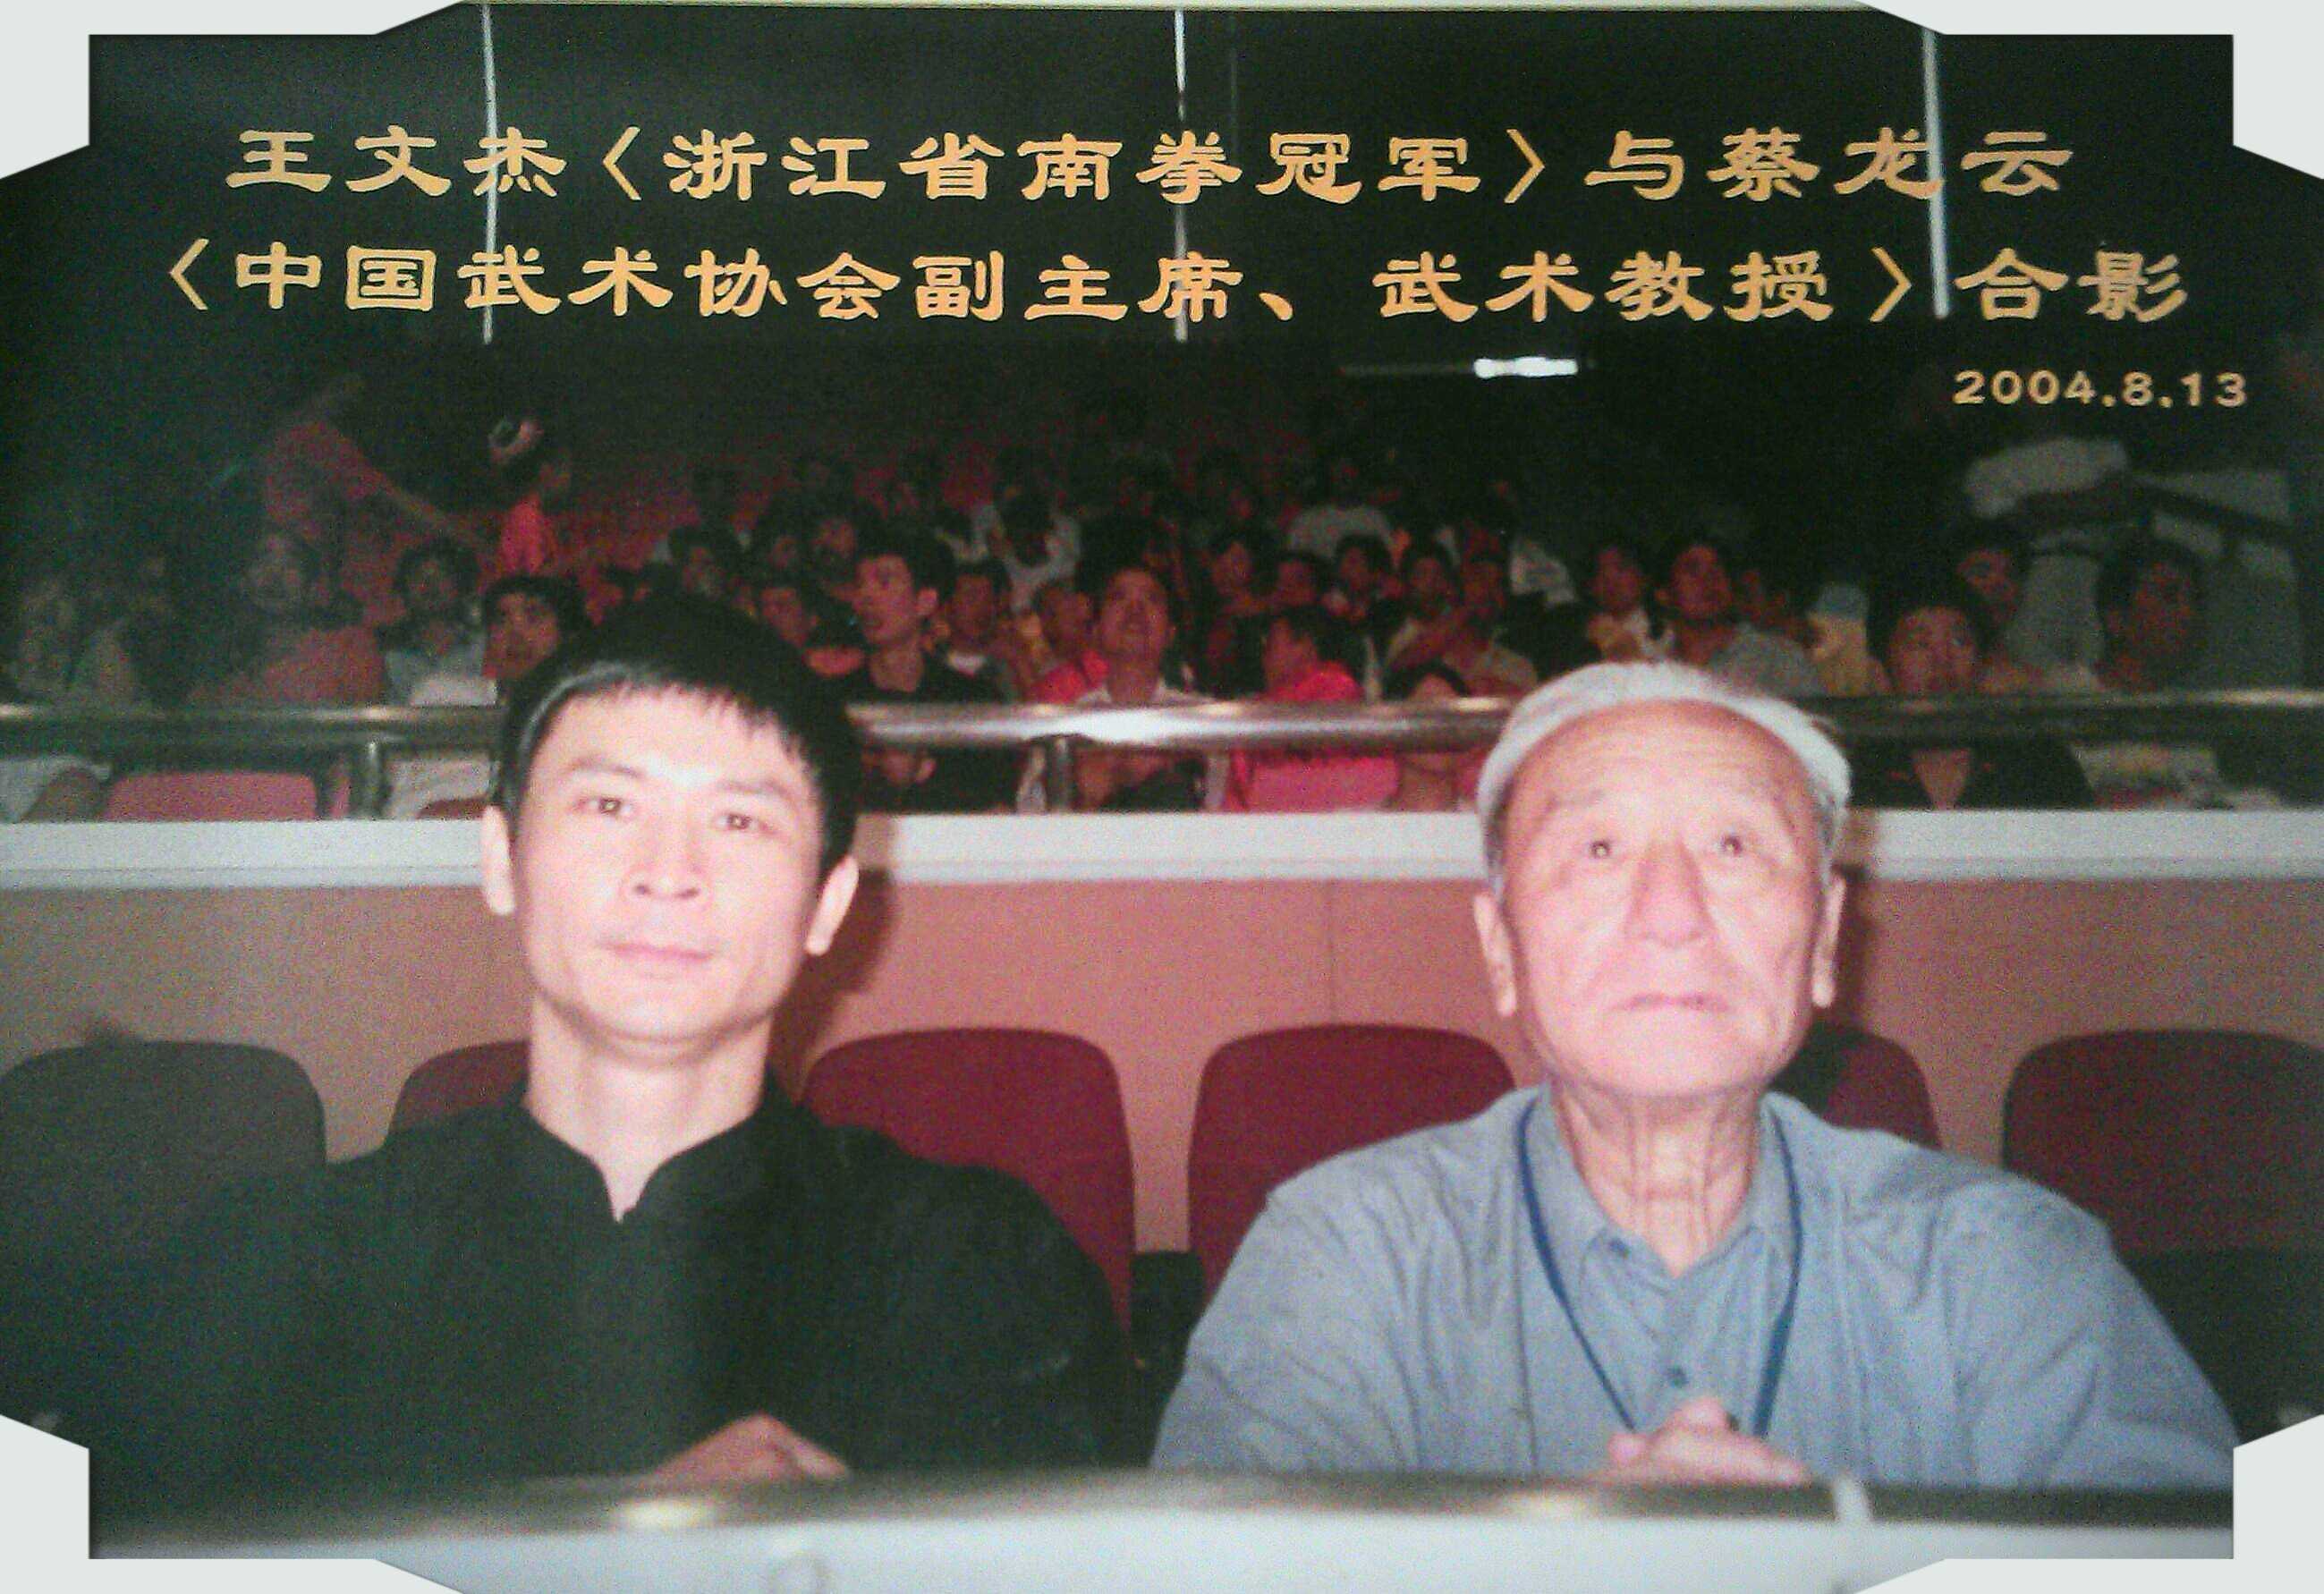 王文杰〈浙江省南拳冠军〉与蔡龙云
〈中国武术协会副主席、武术教授〉合影
2004.8.13